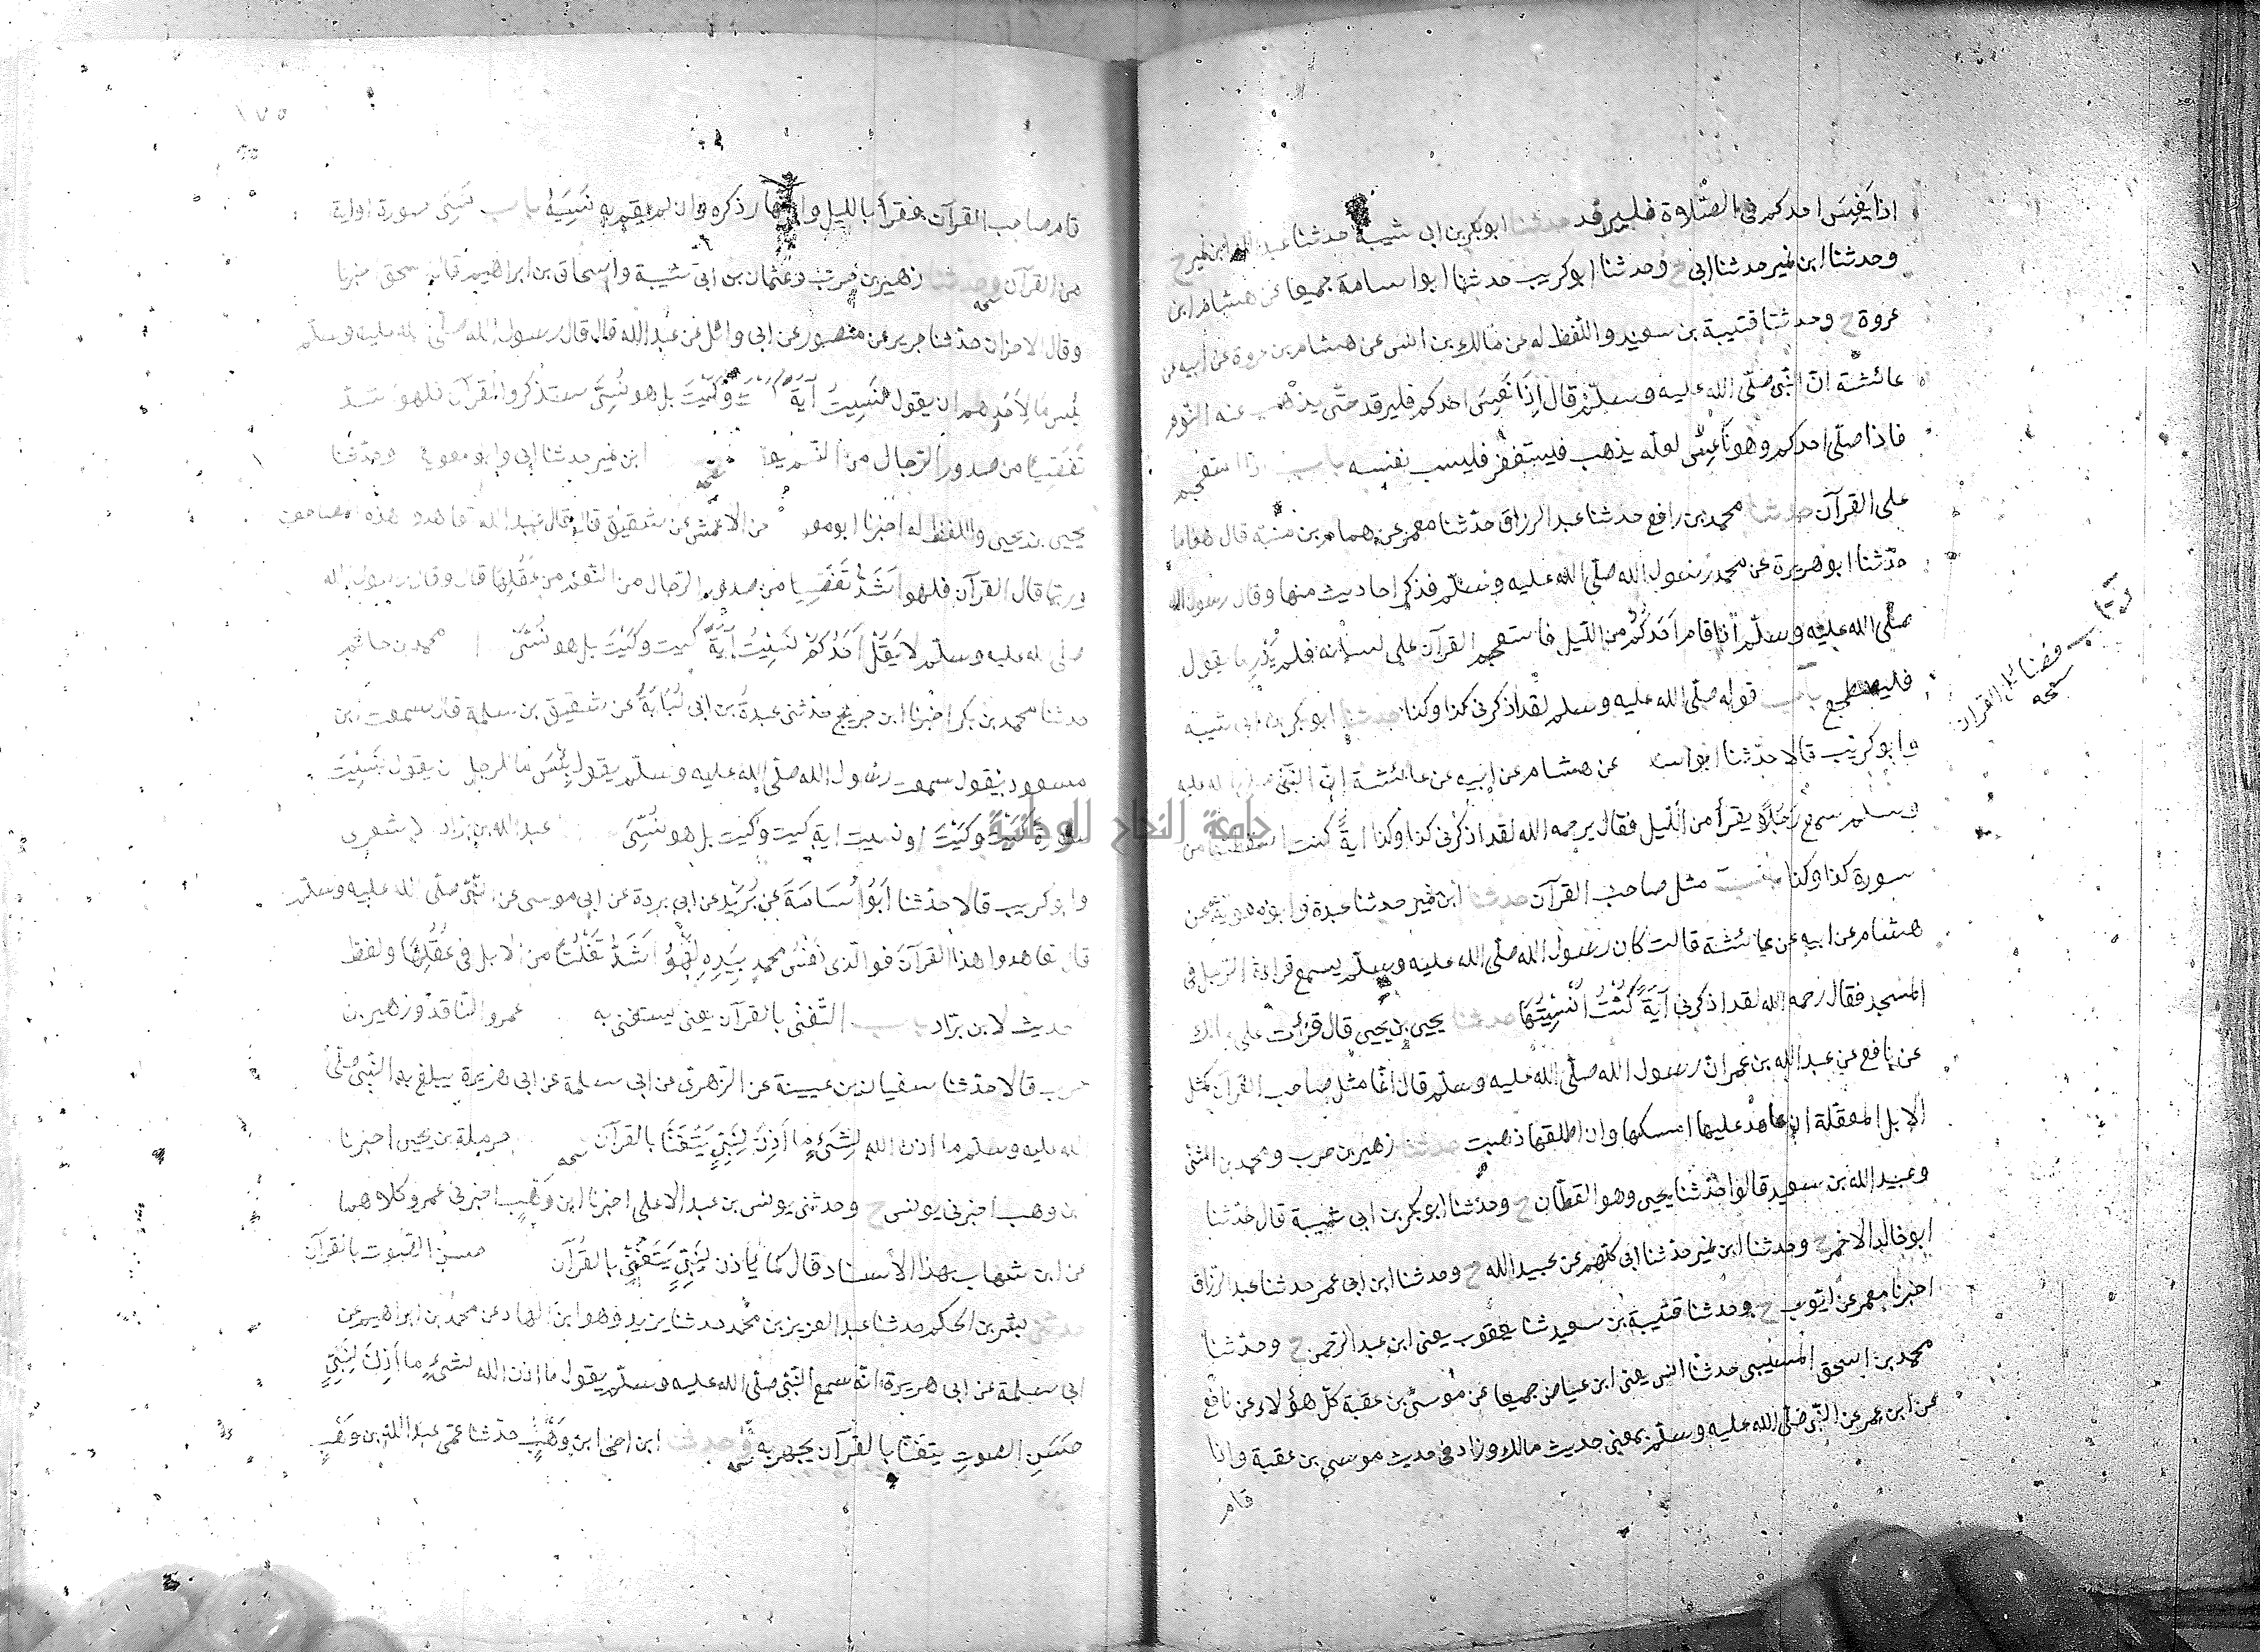 اذا نَعِسَ احدكم فى الصّلاة فليرقد حدثنا ابو بكر بن ابى شيبة حدثنا عبد الله ابن نمير ح
وحدثنا ابن نمير حدثنا ابى ح وحدثنا ابو كريب حدثنا ابو اسامة جميعا عن هشام ابن
عروة ح وحدثنا قتيبة بن سعيد واللفظ له عن مالك بن انس عن هشام بن عروة عن أبيه عن
عائشة انّ النّبى صلّى الله عليه وسلّم قال إِذَا نَعِسَ احدكم فليرقد حتّى يذهب عنه النّوم
فاذا صلّى احدكم وهو نَاعِسٌ لعلّه يذهب فيستغفر فليسب نفسه باب اذا استعجم
على القرآن حدثنا محمد بن رافع حدثنا عبد الرزاق حدّثنا معمر عن همام بن منبّه قال هذا ما
حدّثنا ابو هريرة عن محمد رسول الله صلّى الله عليه وسلّم فذكر احاديث منها وقال رسول الله
صلّى الله عليه وسلّم اذا قام اَحَدُكُم من اللّيل فاستعجم القرآن على لسانه فلم يَدْرِ ما يقول
فليضطجع باب قوله صلّى الله عليه وسلم لقد اذكرنى كذا وكذا حدثنا ابو بكر بن ابى شيبة
وابو كريب قالا حدّثنا ابو اسا عن هشام عن ابيه عن عائشة انّ النّبى صلى الله عليه
وسلم سمع رَجُلًا يقرأ من اللّيل فقال يرحمه الله لقد اذكرنى كذا وكذا ايةً كنت اسقطتها من
سورة كذا وكذا باب مثل صاحب القرآن حدثنا ابن نمير حدثنا عبدة وابو معوية عن
هشام عن ابيه عن عائشة قالت كان رسول الله صلّى الله عليه وسلّم يسمع قراءة الرّجل فى
المسجد فقال رحمه الله لقد اذكرنى آيَةً كُنْتُ اُنْسِيتُهَا حدثنا يحيى بن يحيى قال قرأت على مالك
عن نافع عن عبد الله بن عمر ان رسول الله صلّى الله عليه وسلّم قال انّما مثل صاحب القرآن كمثل
الابل المعقّلة ان عاهد عليها امسكها وان اطلقها ذهبت حدثنا زهير بن حرب ومحمد بن المثنى
وعبيد الله بن سعيد قالوا حدّثنا يحيى وهو القطّان ح وحدّثنا ابو بكر بن ابى شيبة قال حدّثنا
ابو خالد الاحمر ح وحدثنا ابن نمير حدّثنا ابى كلّهم عن عبيد الله ح وحدثنا ابن ابى عمر حدثنا عبد الرّزاق
اخبرنا معمر عن ايّوب ح وحدثنا قتيبة بن سعيد ثنا يعقوب يعنى ابن عبد الرّحمن ح وحدّثنا
محمد بن اسحق المسيبى حدثنا انس يعنى ابن عياض جميعا عن موسى بن عقبة كلّ هؤلاء عن نافع
عن ابن عمر عن النّبى صلّى الله عليه وسلّم بمعنى حديث مالك وزاد فى حديث موسى بن عقبة واذا
قام
فضائل القرآن
نسخه
١٧٥
قام صاحب القرآن فقرأ بالليل والنهار ذكره وان لم يقم به نَسِيَهُ باب نَسِىَ سورة او اية
من القرآن وحدثنا زهير بن حرب وعثمان بن ابى شيبة واسحاق بن ابراهيم قال اسحق انبا
وقال الاخران حدّثنا جرير عن منصور عن ابى وائل عن عبد الله قال قال رسول الله صلّى الله عليه وسلّم
بئس مَا لأحدهم ان يقول نَسِيتُ آيَةَ كَيْتَ وَكَيْتَ بل هو نُسِّىَ ستذكروا القرآن فلهو اشدّ
تَفَصّيا من صدور الرّجال من النّعم بعقلها ابن نمير حدثنا ابى وابو معوية وحدّثنا
يحيى بن يحيى واللفظ له اخبرنا ابو معو عن الاعمش عن شقيق قال قال عبد الله تعاهدوا هذه المصاحف
وربّما قال القرآن فلهو اَشَدُّ تَفَصِّيا من صدور الرّجال من النّعم من عُقُلِها قال وقال رسول الله
صلى الله عليه وسلّم لَا يَقُلْ اَحَدُكُمْ نَسِيتُ آيَةَ كيت وكَيْتَ بل هو نُسِّىَ محمد بن حاتم
حدثنا محمد بن بكر اخبرنا ابن جريج حدّثنى عبدة بن ابى لُبَابَةَ عن شقيق بن سلمة قال سمعت ابن
مسعود يقول سمعت رسول الله صلّى الله عليه وسلّم يقول بِئْسَ مَا للرجل ان يقول نَسِيتُ
سُورَةَ كَيْتَ وَكَيْتَ او نسيت اية كيت وكيت بل هو نُسِّىَ عبد الله بن براد الاشعرى
وابو كريب قالا حدّثنا اَبُو اُسَامَةَ عن بُرَيْدٍ عن ابى بردة عن ابى موسى عن النّبىّ صلّى الله عليه وسلّم
قال تعاهدوا هذا القرآنَ فو الّذى نَفْسُ محمدٍ بِيَدِهِ لَهُوَ اَشَدُّ تَفَلُّتًا من الابل فى عُقُلِهَا ولفظ
حديث لابن برّاد باب التّغنّى بالقرآن يعنى يستغنى به عمرو النّاقد وزهير بن
حرب قالا حدّثنا سفيان بن عيينة عن الزّهرى عن ابى سلمة عن ابى هريرة يبلغ به النّبى صلّى
الله عليه وسلّم ما اذن الله لِشَىْءٍ ما اَذِنَ لِنَبِىٍّ يَتَغَنّا بالقرآن حرملة بن يحيى اخبرنا
بن وهب اخبرنى يونس ح وحدثنى يونس بن عبد الاعلى اخبرنا ابن وَهْبٍ اخبرنى عمرو كلاهما
عن ابن شهاب بهذا الأسناد قال كما يأذن لِنَبِىٍّ يَتَغَنَّى بالقُرآن حسن الصّوت بالقرآن
حدثنى بشر بن الحكم حدثنا عبد العزيز بن محمّد حدثنا يزيد وهو ابن الهاد عن محمد بن ابراهيم عن
ابى سلمة عن ابى هريرة انّه سمع النّبى صلّى الله عليه وسلّم يقول ما اذن الله لشىءٍ ما أَذِنَ لِنَبِىٍّ
حَسَنِ الصوتِ يتغنّا بالقُرآن يجهر به وحدثنا ابن اخى ابن وَهْبٍ حدّثنا عمّى عبد الله بن وَهْبٍ
جامعة النجاح الوطنية